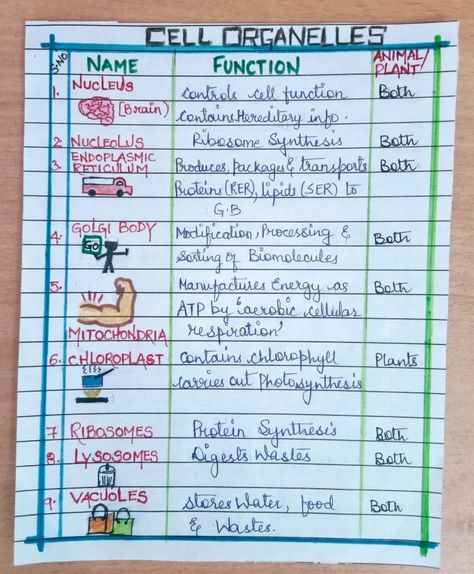 CELL ORGANELLES
S.NO NAME FUNCTION ANIMAL/
PLANT?
1. NUCLEUS Controls cell function Both
[Brain] contains Hereditary info.
2. NUCLEOLUS Ribosome Synthesis Both
3. ENDOPLASMIC Produces, packages & transports Both
RETICULUM Proteins (RER), lipids (SER) to
G.B
4. GOLGI BODY Modification, Processing & Both
GO Sorting of Biomolecules
5. Manufactures Energy as Both
ATP by 'aerobic cellular
MITOCHONDRIA respiration'
6. CHLOROPLAST Contains chlorophyll Plants
carries out Photosynthesis
7. RIBOSOMES Protein Synthesis Both
8. LYSOSOMES Digests Wastes Both
9. VACUOLES stores Water, food Both
& Wastes.